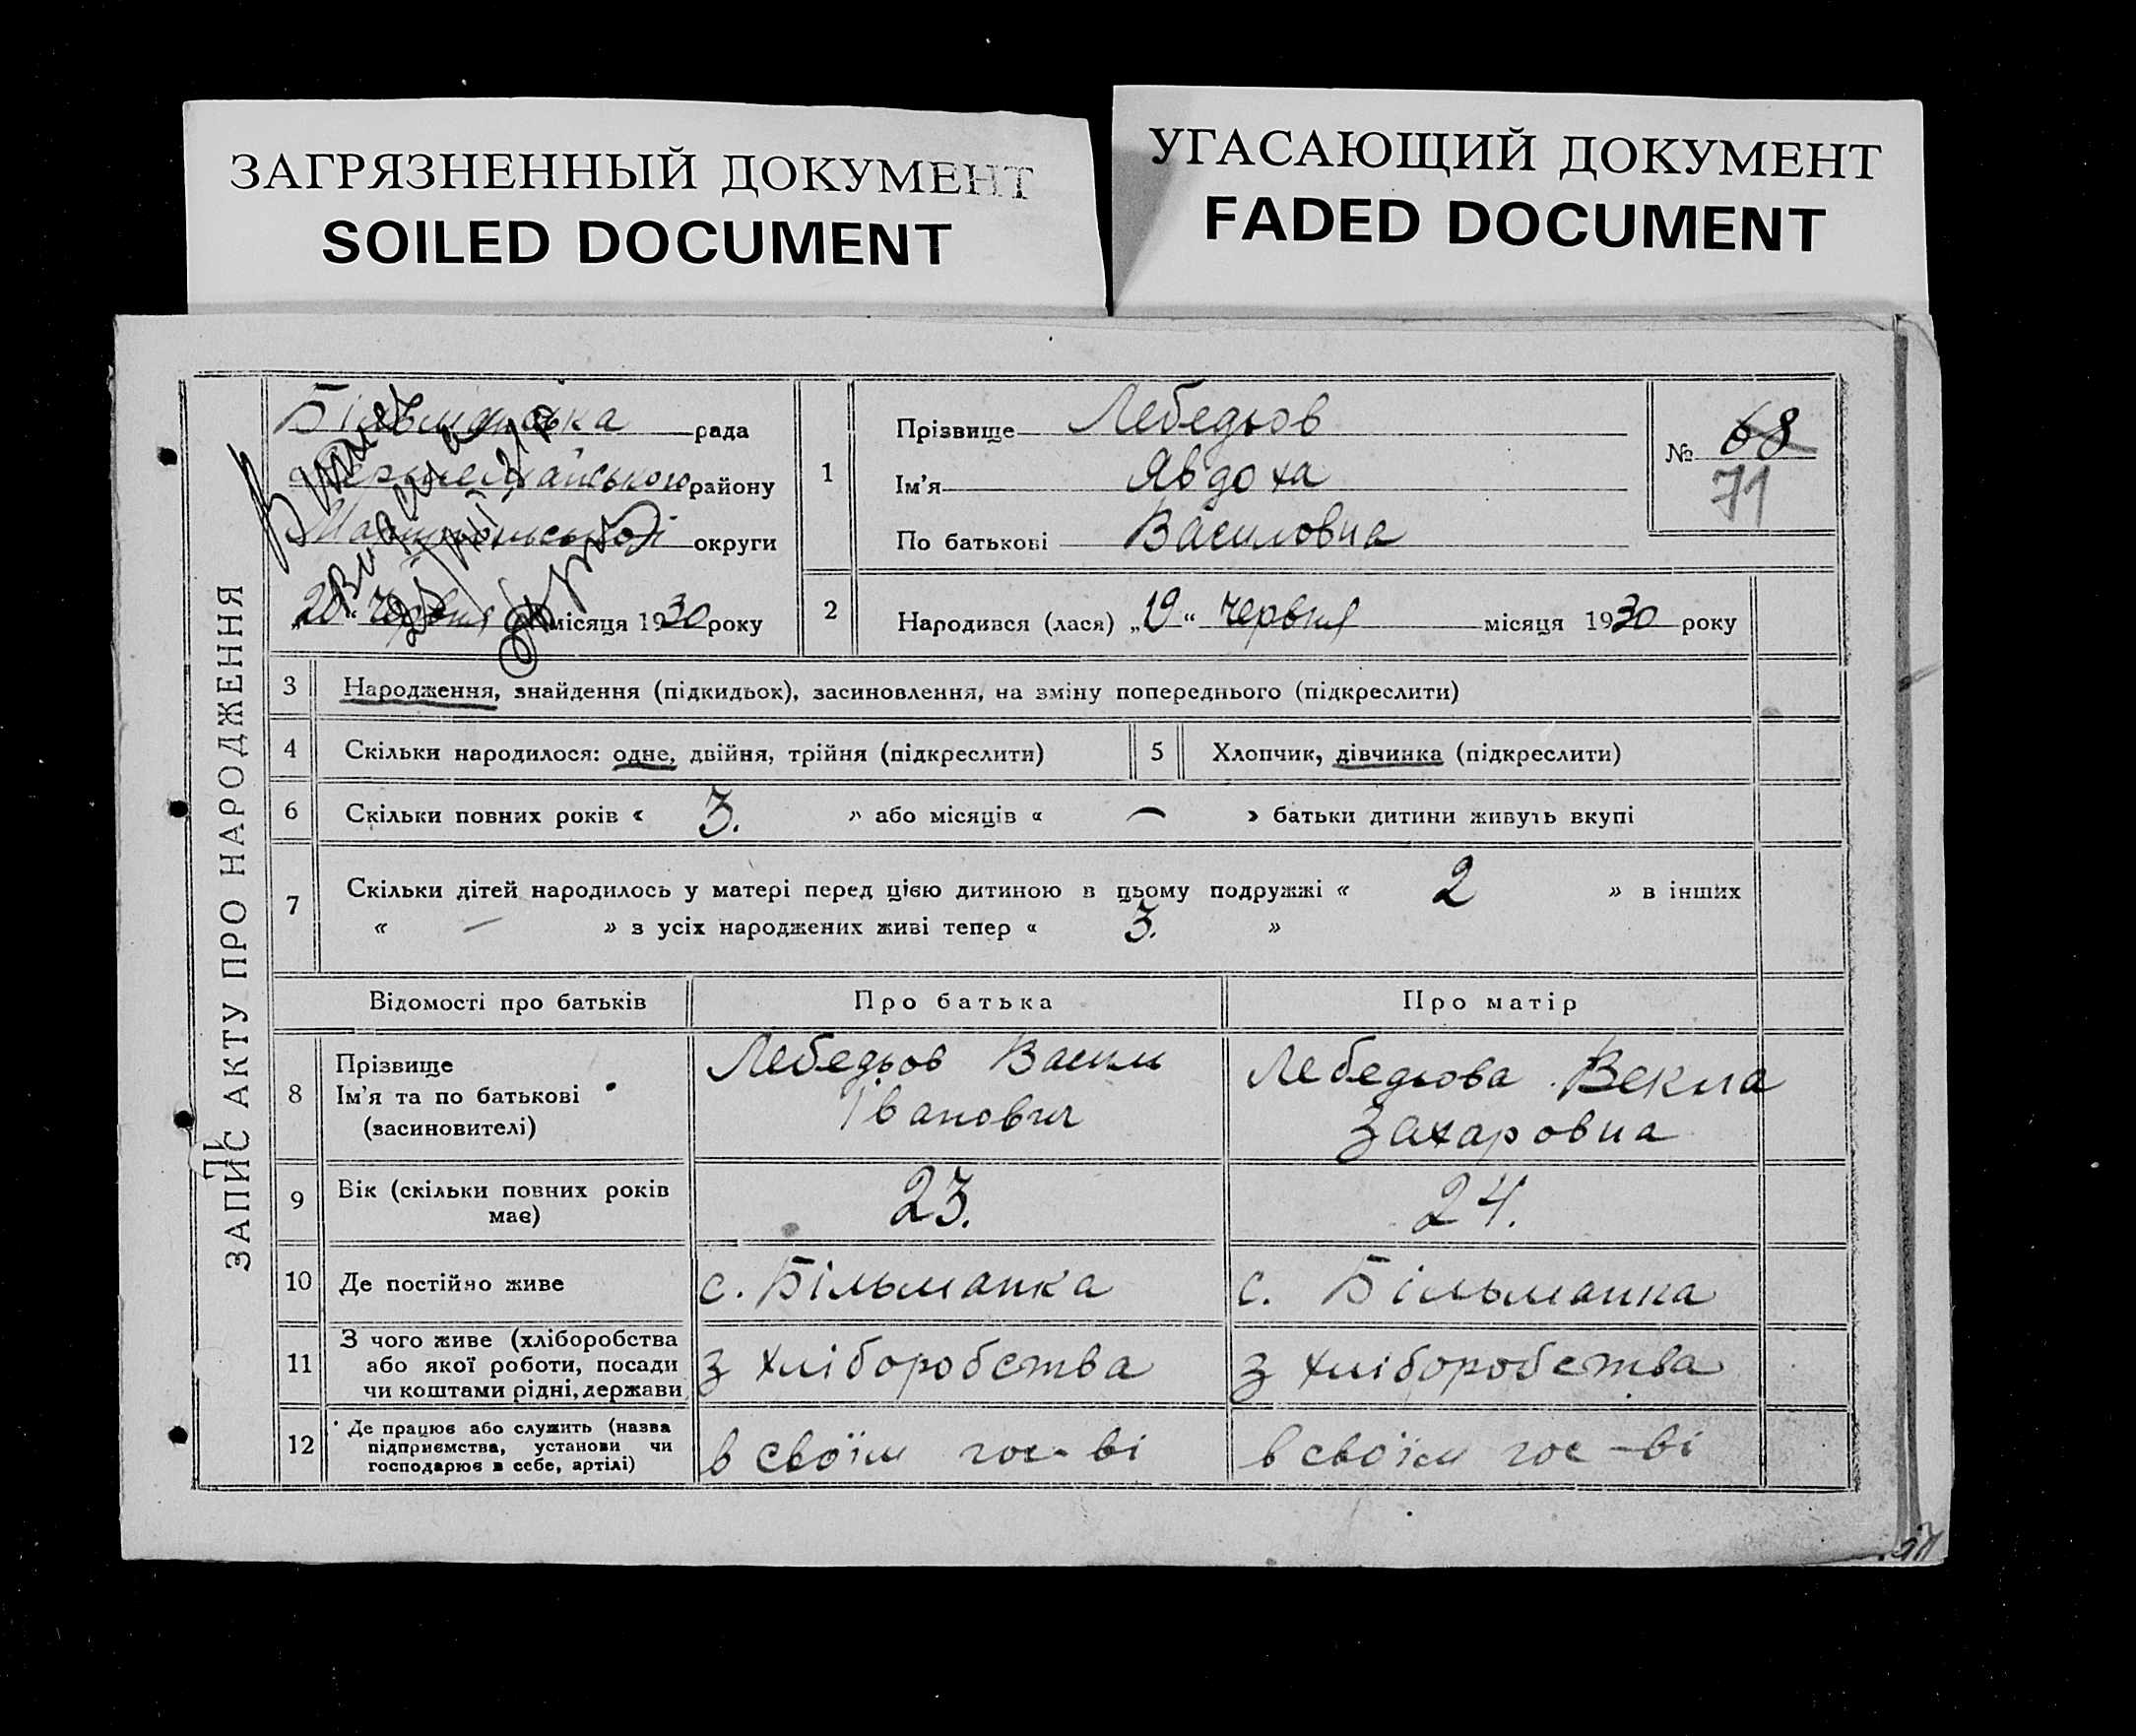 ЗАГРЯЗНЕННЫЙ ДОКУМЕНТ
SOILED DOCUMENT
УГАСАЮЩИЙ ДОКУМЕНТ
FADED DOCUMENT
ЗАПИС АКТУ ПРО НАРОДЖЕННЯ
Більманська рада
Першемайського району
округи
„20“ Червня місяця 1930 року
1
Прізвище Лебедьов
Ім'я Явдоха
По батькові Василовна
№ 68
71
2 Народився (лася) „19“ червня місяця 1930 року
3 Народження, знайдення (підкидьок), засиновлення, на зміну попереднього (підкреслити)
4 Скільки народилося: одне, двійня, трійня (підкреслити) 5 Хлопчик, дівчинка (підкреслити)
6 Скільки повних років « 3. » або місяців « — » батьки дитини живуть вкупі
7 Скільки дітей народилось у матері перед цією дитиною в цьому подружжі « 2 » в інших
« — » з усіх народжених живі тепер « 3. »
Відомості про батьків Про батька Про матір
8 Прізвище
Ім'я та по батькові
(засиновителі)
Лебедьов Василь
Іванович
Лебедьова Векла
Захаровна
9 Вік (скільки повних років
має)
23. 24.
10 Де постійно живе с. Більманка с. Більманка
11 З чого живе (хліборобства
або якої роботи, посади
чи коштами рідні, держави
з хліборобства з хліборобства
12 Де працює або служить (назва
підприємства, установи чи
господарює в себе, артілі)
в своїм гос-ві в своїм гос-ві